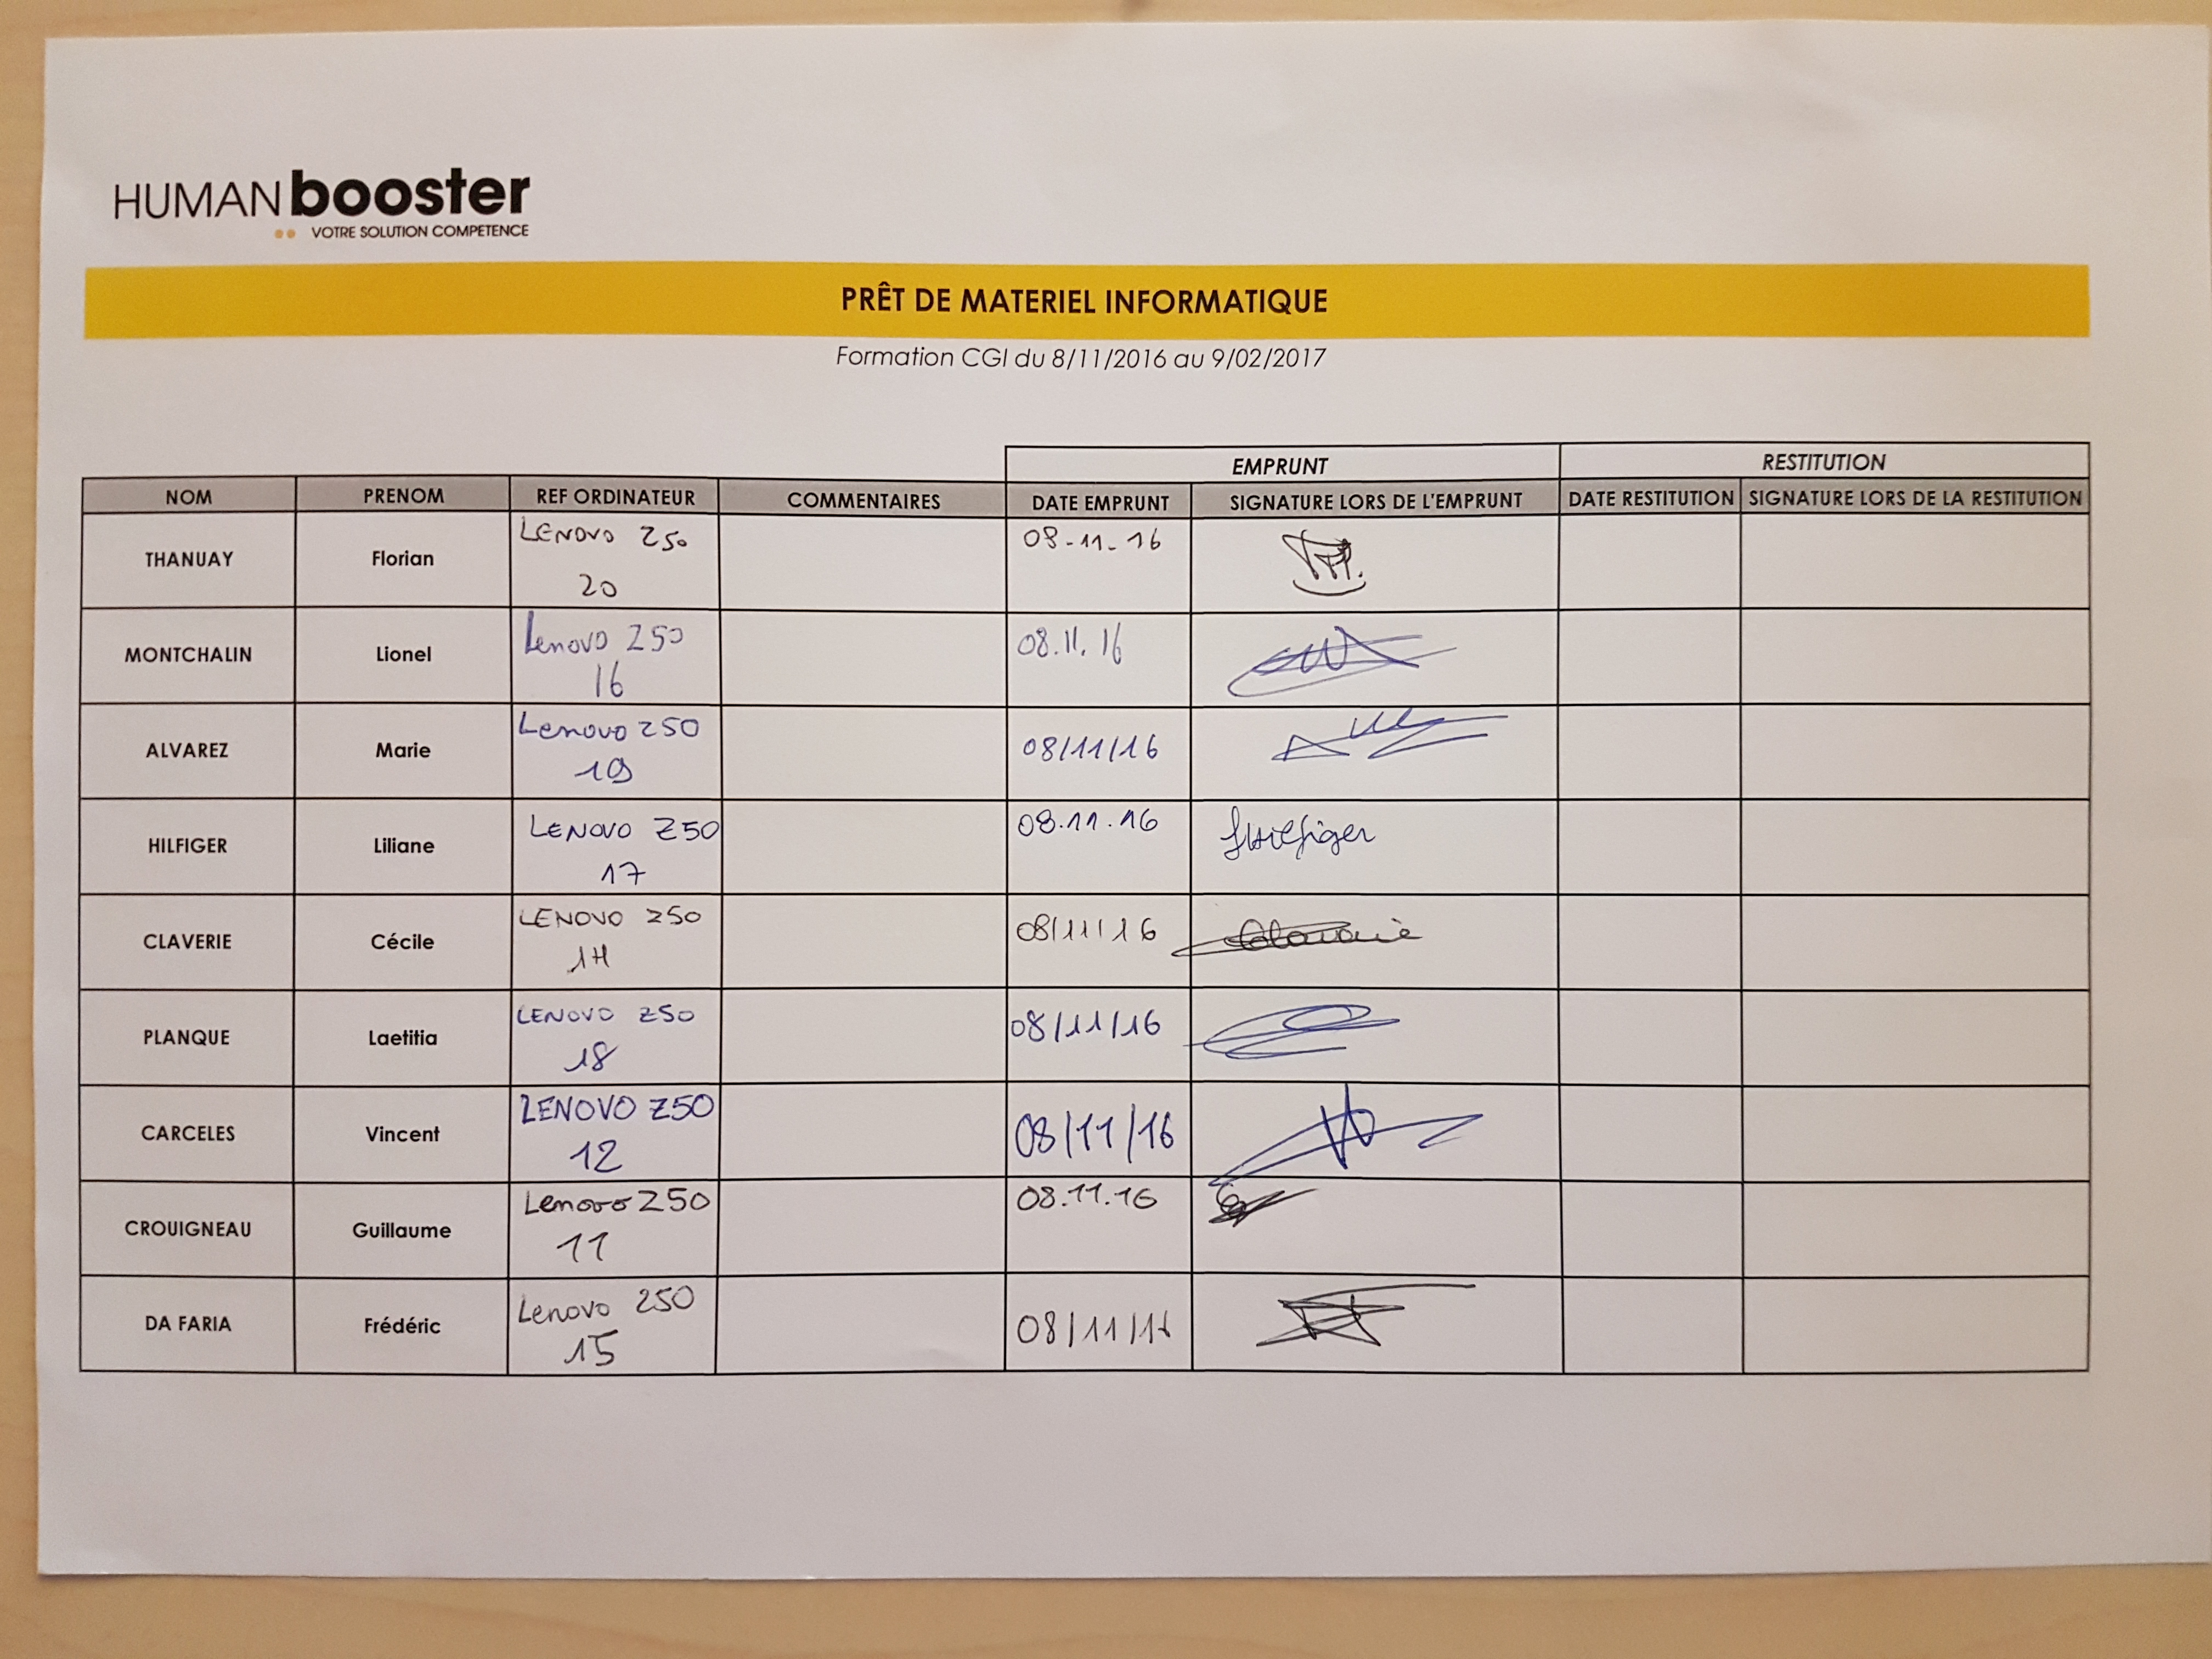 HUMANbooster
VOTRE SOLUTION COMPETENCE
PRÊT DE MATERIEL INFORMATIQUE
Formation CGI du 8/11/2016 au 9/02/2017
EMPRUNT RESTITUTION
NOM PRENOM REF ORDINATEUR COMMENTAIRES DATE EMPRUNT SIGNATURE LORS DE L'EMPRUNT DATE RESTITUTION SIGNATURE LORS DE LA RESTITUTION
THANUAY Florian LENOVO Z50 08-11-16
20
MONTCHALIN Lionel Lenovo Z50 08.11.16
16
ALVAREZ Marie Lenovo Z50 08/11/16
19
HILFIGER Liliane LENOVO Z50 08.11.16 Hilfiger
17
CLAVERIE Cécile LENOVO Z50 08/11/16 Claverie
14
PLANQUE Laetitia LENOVO Z50 08/11/16
18
CARCELES Vincent LENOVO Z50 08/11/16
12
CROUIGNEAU Guillaume Lenovo Z50 08.11.16
11
DA FARIA Frédéric Lenovo Z50 08/11/16
15